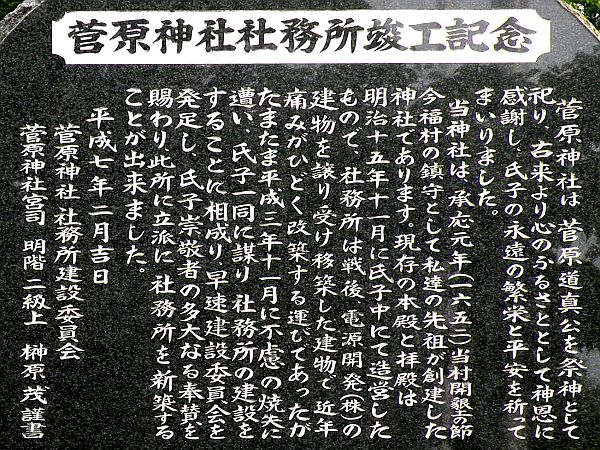 菅原神社社務所竣工記念
菅原神社は 菅原道真公を祭神として
祀り、古来より心のふるさととして神恩に
感謝し、氏子の永遠の繁栄と平安を祈って
まいりました。
当神社は、承応元年(一六五二)当村開墾の節
今福村の鎮守として私達の先祖が創建した
神社であります。現存の本殿と拝殿は
明治十五年十一月に氏子中にて造営した
もので、社務所は戦後、電源開発(株)の
建物を譲り受け移築した建物で 近年
痛みがひどく改築する運びであったが
たまたま平成三年十一月に不慮の焼失に
遭い、氏子一同に謀り 社務所の建設を
することに相成り、早速建設委員会を
発足し、氏子崇敬者の多大なる奉賛を
賜わり此所に立派に 社務所を新築する
ことが出来ました。
平成七年二月吉日
菅原神社社務所建設委員会
菅原神社宮司 明階 二級上 榊原茂 謹書